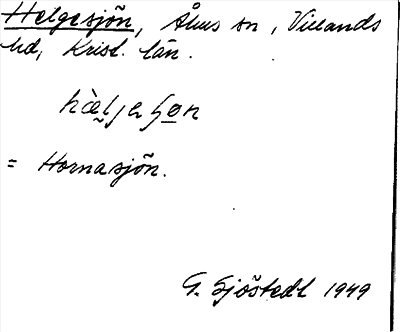 Helgesjön, Åhus sn, Villands
hd, Krist. län.
= Hornasjön.
G. Sjöstedt 1949